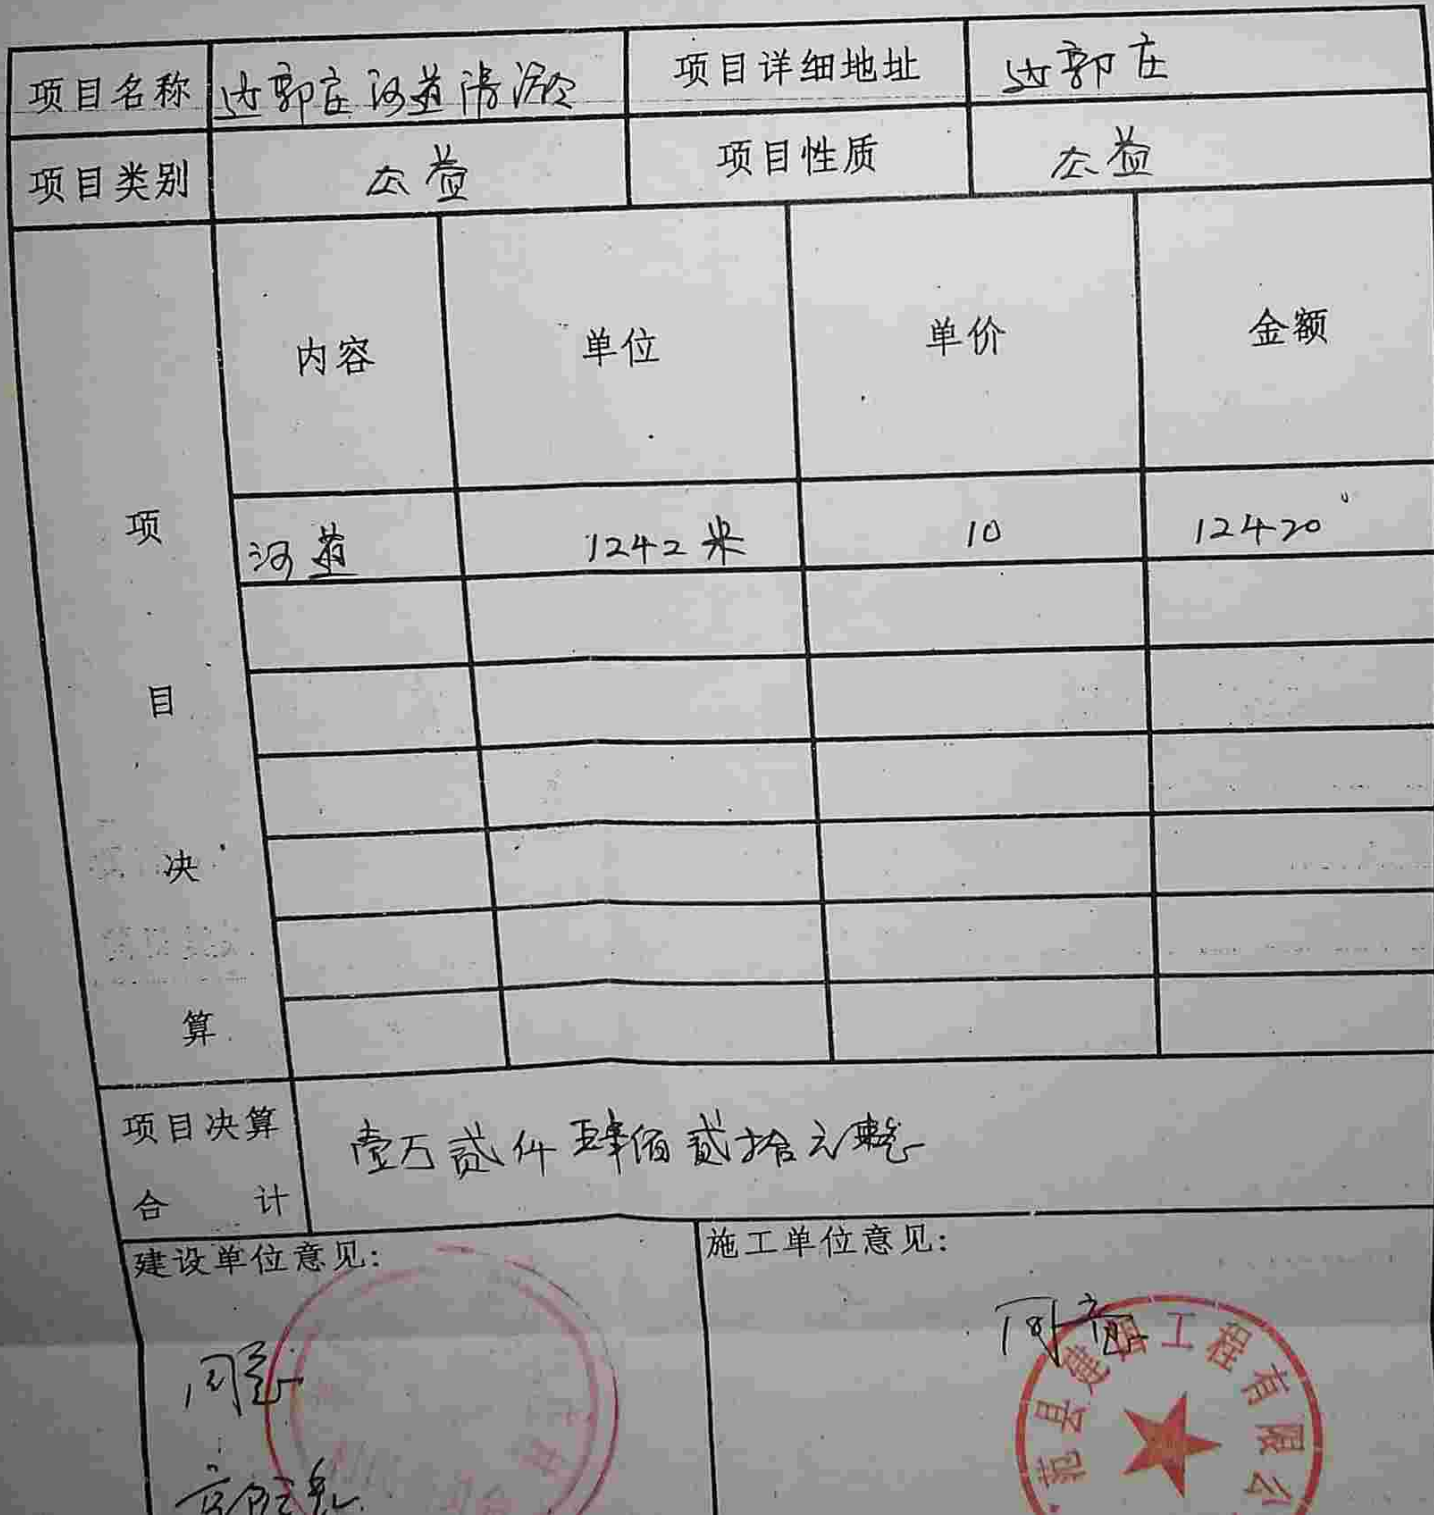 项目名称 边郭庄河道清淤 项目详细地址 边郭庄
项目类别 公益 项目性质 公益
项目决算
内容 单位 单价 金额
河道 1242米 10 12420
项目决算合计 壹万贰仟肆佰贰拾元整
建设单位意见: 施工单位意见:
同意 同意
范县建 工程有限公